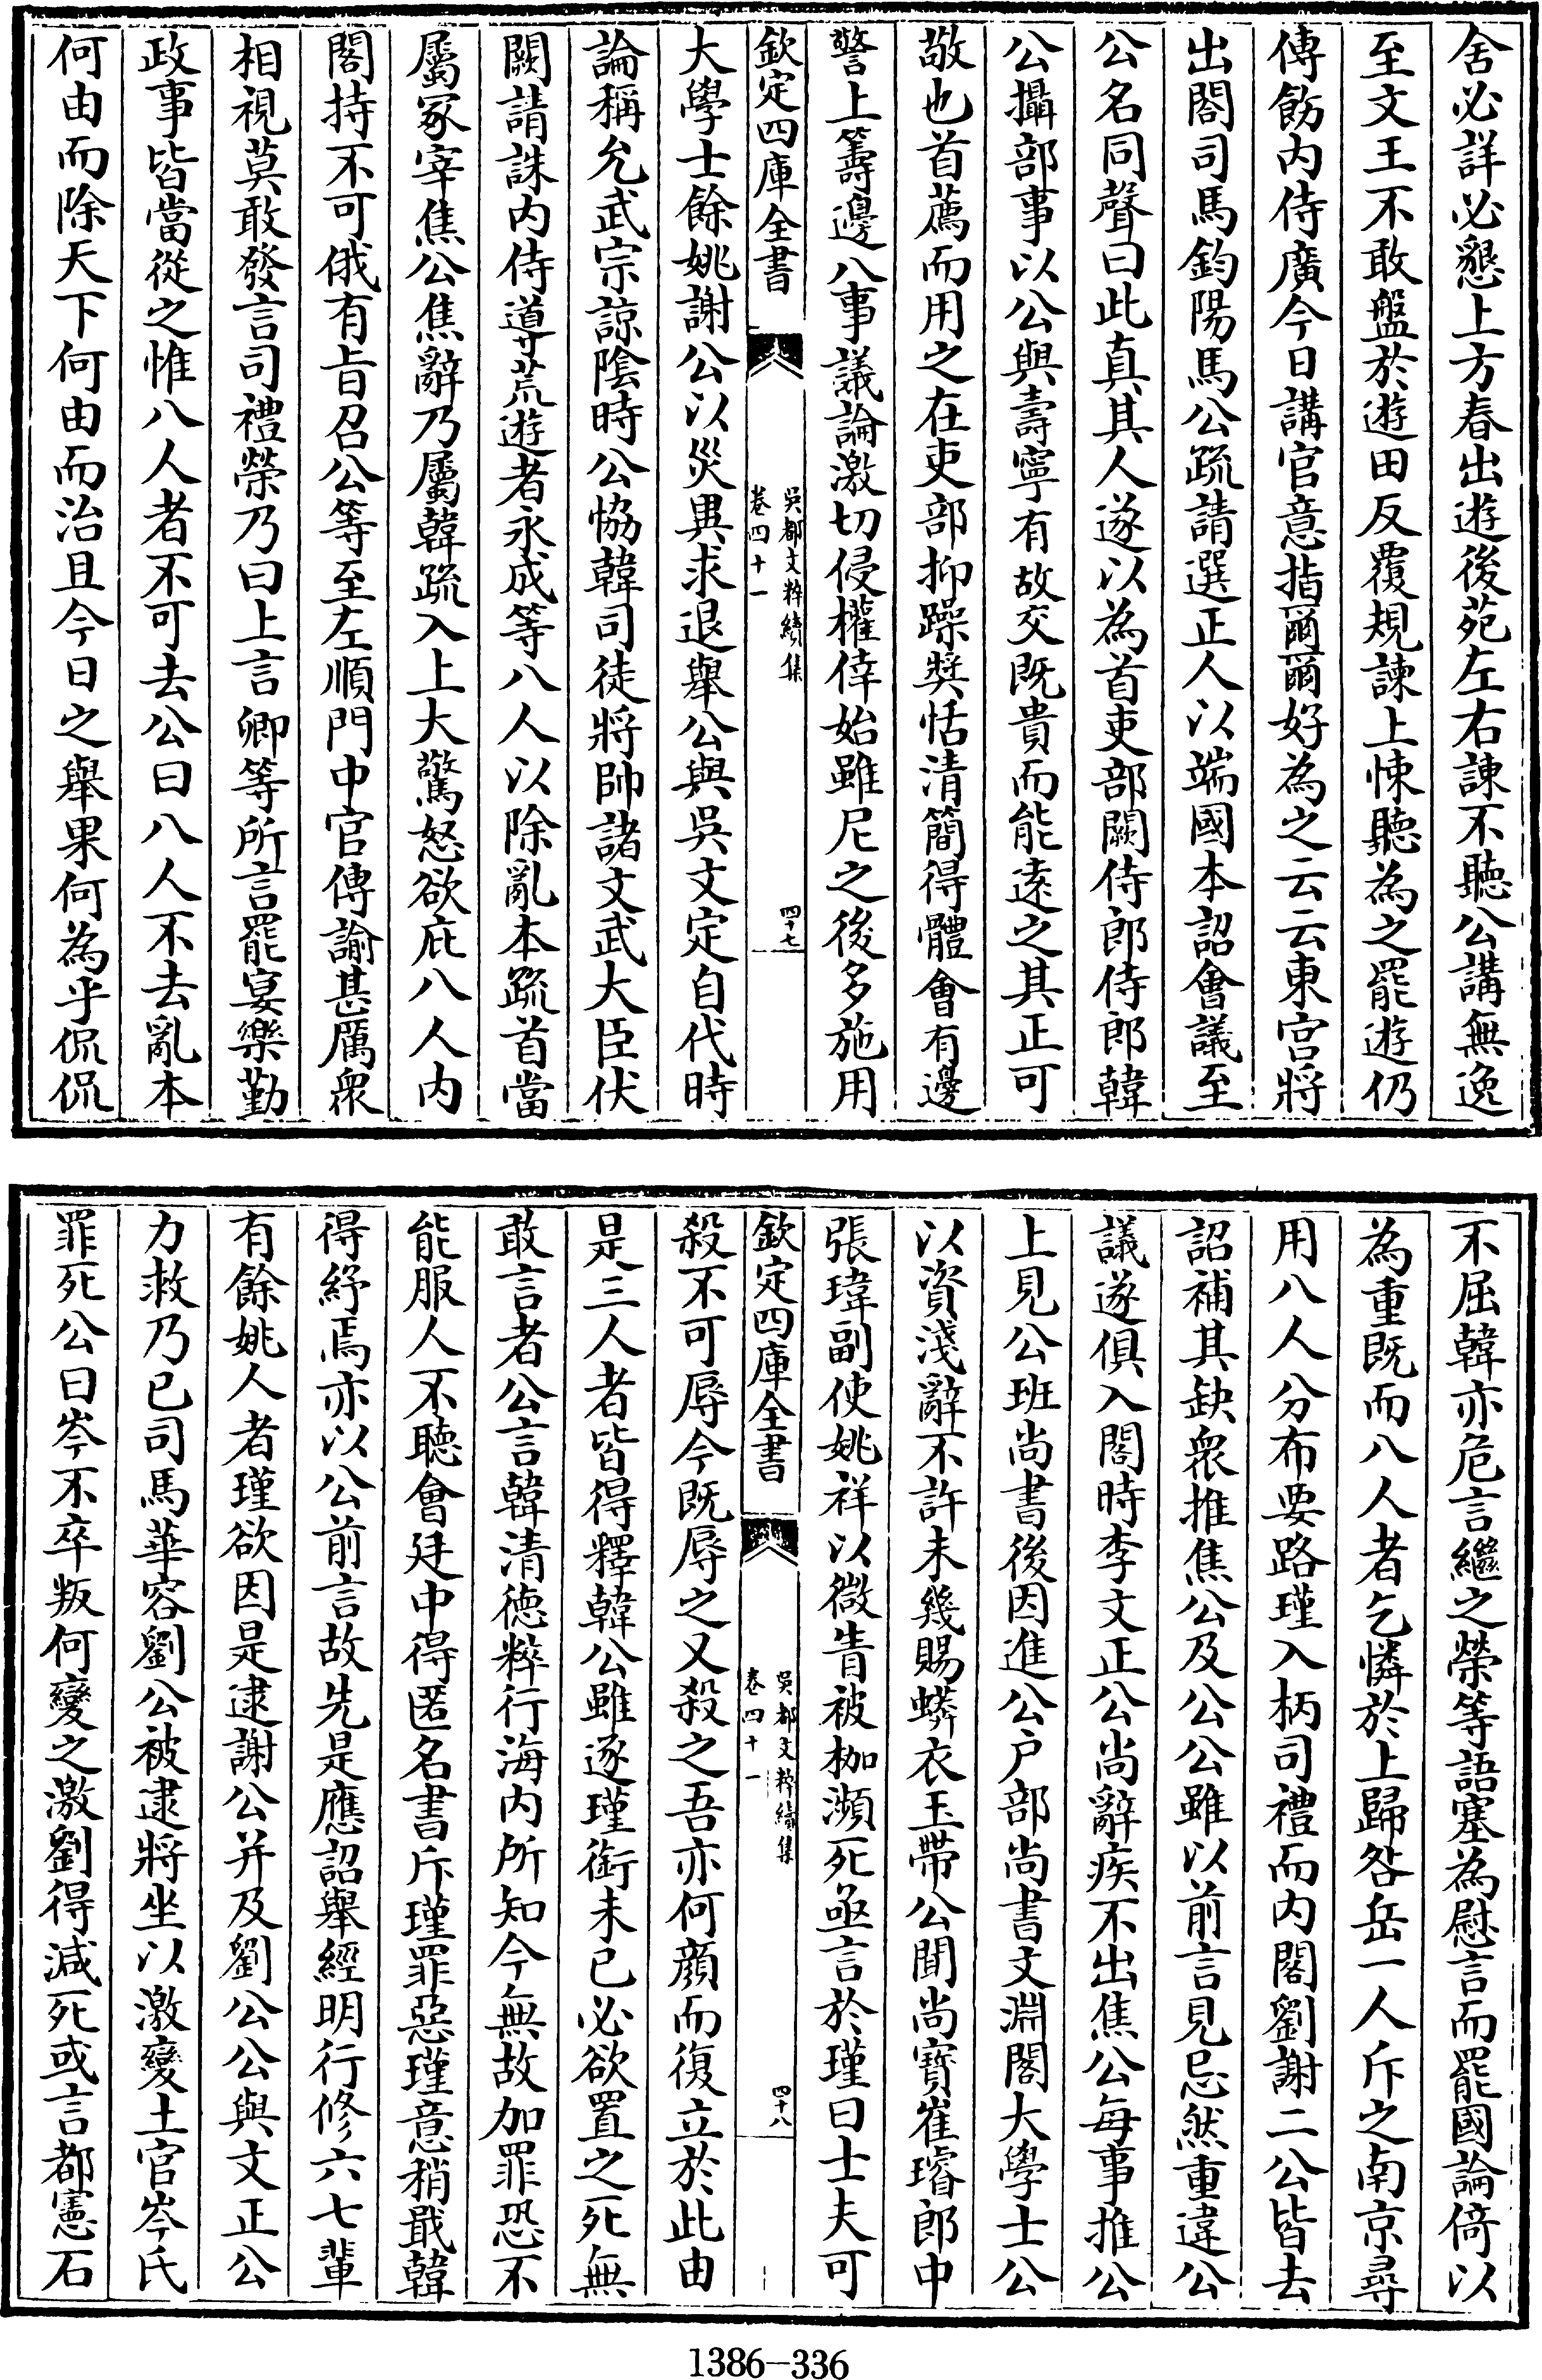 舍必詳必懇上方春出遊後苑左右諫不聽公講無逸
至文王不敢盤於遊田反覆規諫上悚聽為之罷遊仍
傳飭内侍廣今日講官意指爾爾好為之云云東宫將
出閣司馬鈞陽馬公疏請選正人以端國本詔會議至
公名同聲曰此真其人遂以為首吏部闕侍郎侍郎韓
公攝部事以公與壽寧有故交既貴而能遠之其正可
敬也首薦而用之在吏部抑躁奬恬清簡得體會有邊
警上籌邊八事議論激切侵權倖始雖尼之後多施用
欽定四庫全書
吳都文粹續集
卷四十一
四十七
大學士餘姚謝公以災異求退舉公與吳文定自代時
論稱允武宗諒陰時公恊韓司徒將帥諸文武大臣伏
闕請誅内侍導荒遊者永成等八人以除亂本疏首當
屬冢宰焦公焦辭乃屬韓疏入上大驚怒欲庇八人内
閣持不可俄有㫖召公等至左順門中官傳諭甚厲衆
相視莫敢發言司禮榮乃曰上言卿等所言罷宴樂勤
政事皆當從之惟八人者不可去公曰八人不去亂本
何由而除天下何由而治且今日之舉果何為乎侃侃
不屈韓亦危言繼之榮等語塞為慰言而罷國論倚以
為重既而八人者乞憐於上歸咎岳一人斥之南京尋
用八人分布要路瑾入柄司禮而内閣劉謝二公皆去
詔補其缺衆推焦公及公公雖以前言見忌然重違公
議遂俱入閣時李文正公尚辭疾不出焦公每事推公
上見公班尚書後因進公户部尚書文淵閣大學士公
以資淺辭不許未幾賜蟒衣玉帶公聞尚寳崔璿郎中
張瑋副使姚祥以微眚被枷瀕死亟言於瑾曰士夫可
欽定四庫全書
吳都文粹續集
卷四十一
四十八
殺不可辱今既辱之又殺之吾亦何顔而復立於此由
是三人者皆得釋韓公雖逐瑾銜未已必欲置之死無
敢言者公言韓清德粹行海内所知今無故加罪恐不
能服人不聽會廷中得匿名書斥瑾罪惡瑾意稍戢韓
得紓焉亦以公前言故先是應詔舉經明行修六七輩
有餘姚人者瑾欲因是逮謝公并及劉公公與文正公
力救乃已司馬華容劉公被逮將坐以激變土官岑氏
罪死公曰岑不卒叛何變之激劉得減死或言都憲石
1386-336